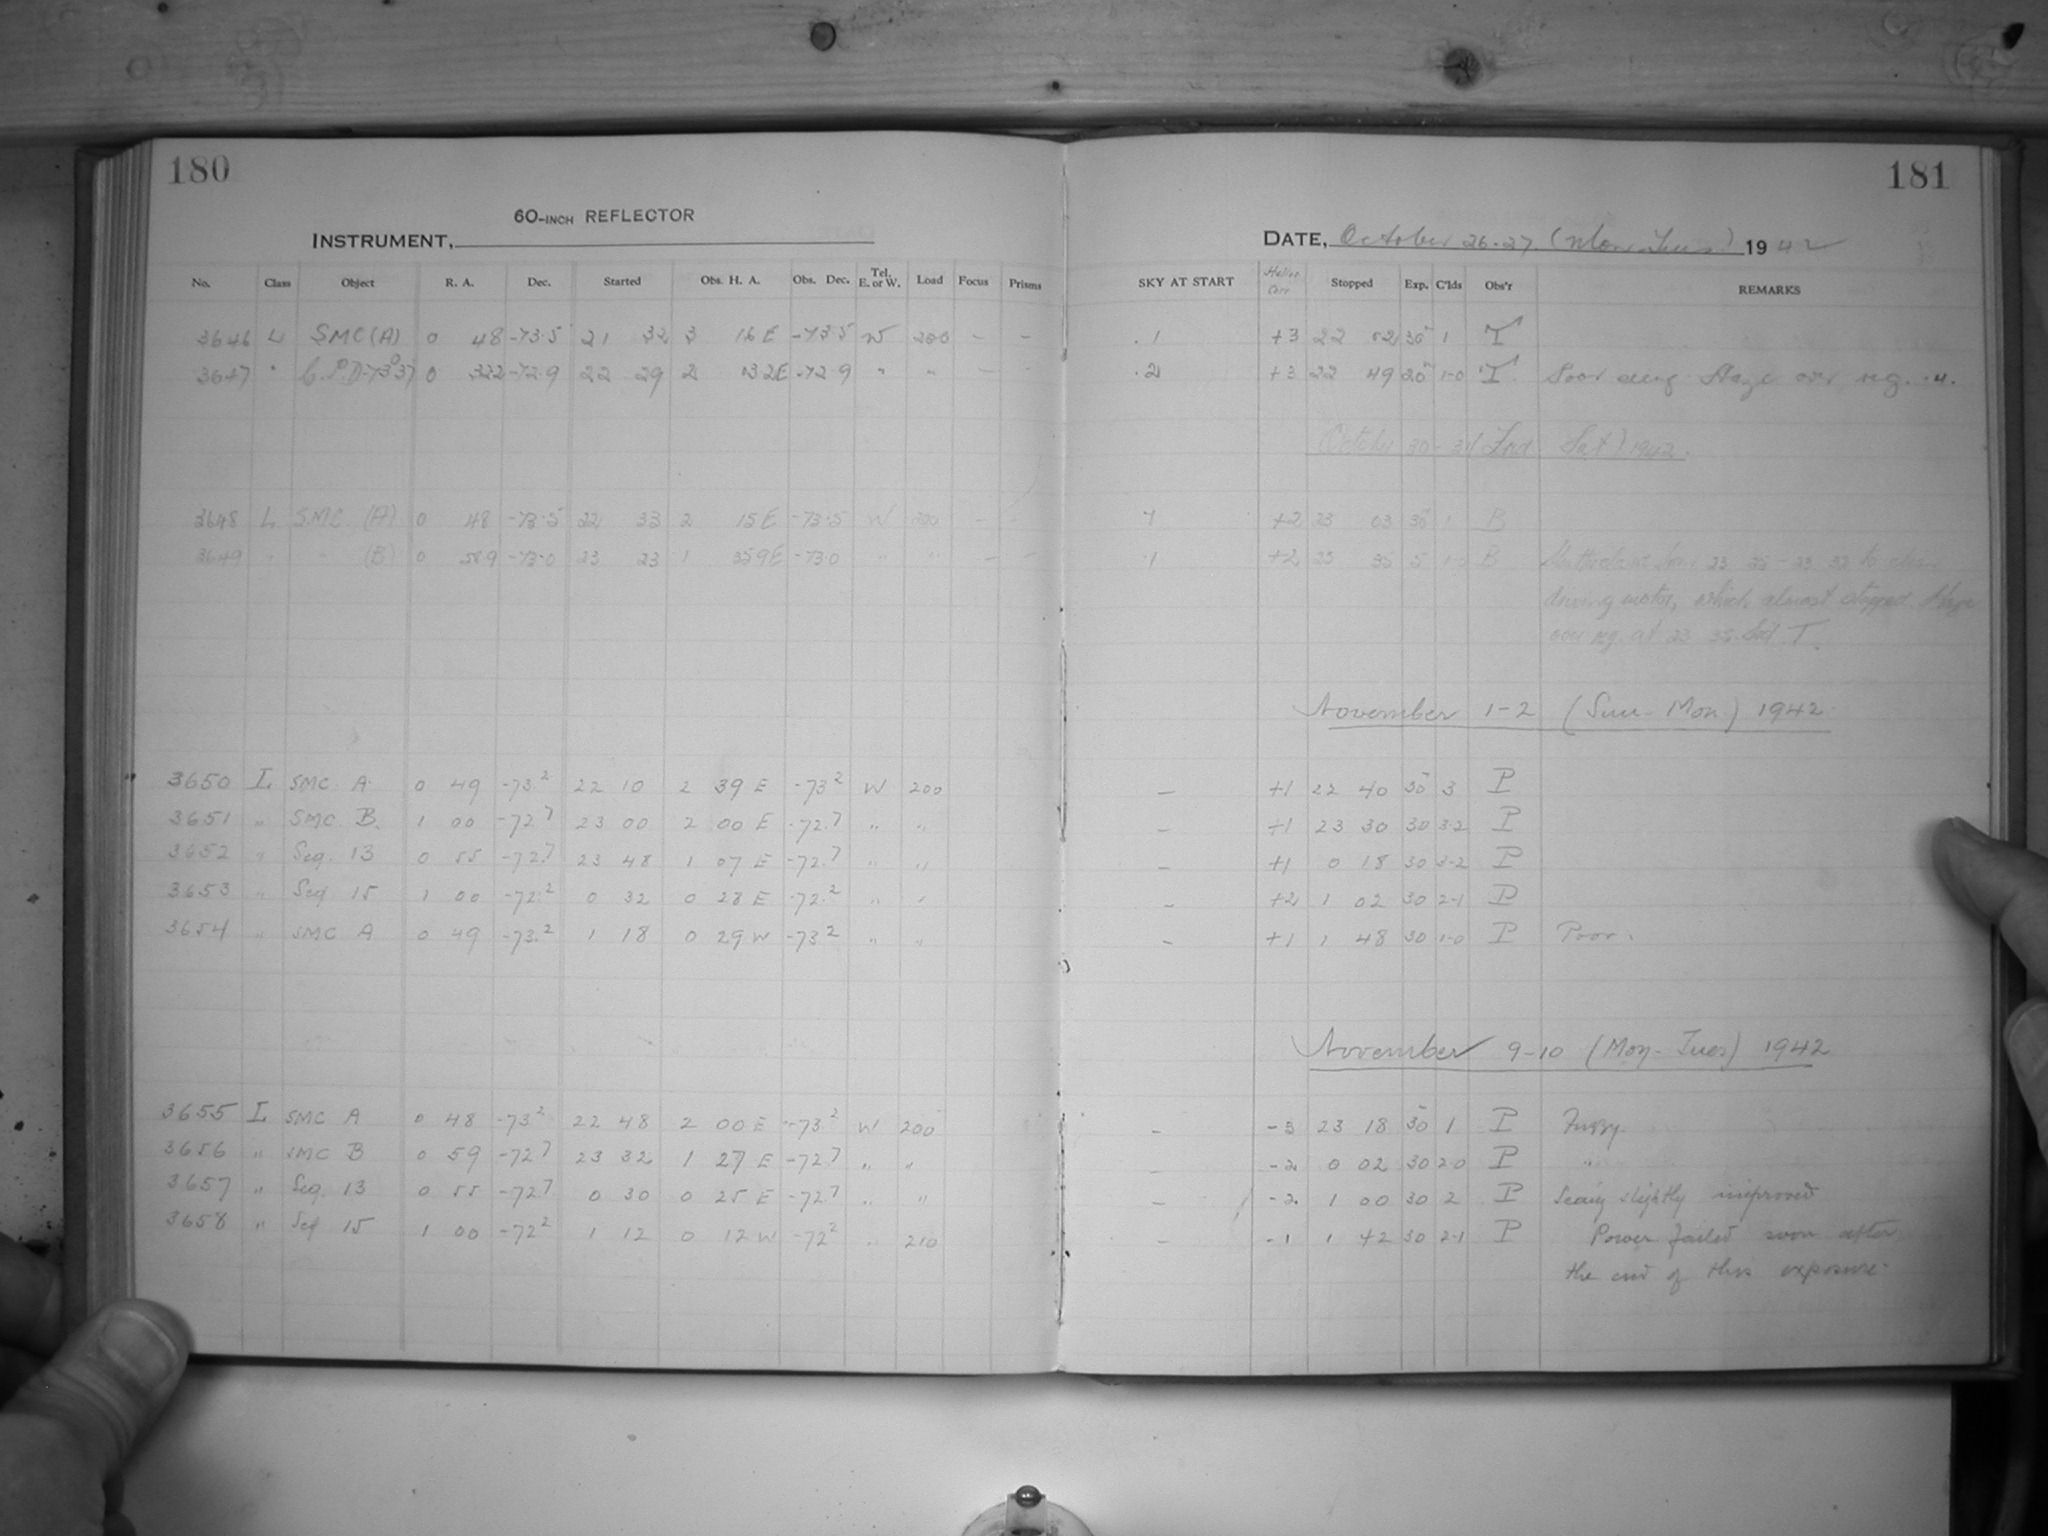 180
60-INCH REFLECTOR
INSTRUMENT,
No. Class Object R. A. Dec. Started Obs. H. A. Obs. Dec. Tel. E. or W. Load Focus Prisms
3646 L SMC (A) 0 48 -73.5 21 32 3 16 E -73.5 W 200 - -
3647 " C.P.D-73°37 0 32.2 -72.9 22 29 2 03.2E -72.9 " " - -
3648 L SMC (A) 0 48 -73.5 22 33 2 15 E -73.5 W 200 - -
3649 " " (B) 0 58.9 -73.0 23 23 1 35.9E -73.0 " " - -
3650 L SMC A 0 49 -73.2 22 10 2 39 E -73.2 W 200
3651 " SMC B. 1 00 -72.7 23 00 2 00 E -72.7 " "
3652 " Seq. 13 0 55 -72.7 23 48 1 07 E -72.7 " "
3653 " Seq 15 1 00 -72.2 0 32 0 28 E -72.2 " "
3654 " SMC A 0 49 -73.2 1 18 0 29 W -73.2 " "
3655 L SMC A 0 48 -73.2 22 48 2 00 E -73.2 W 200
3656 " SMC B 0 59 -72.7 23 32 1 27 E -72.7 " "
3657 " Seq. 13 0 55 -72.7 0 30 0 25 E -72.7 " "
3658 " Seq 15 1 00 -72.2 1 12 0 12 W -72.2 " 210
181
DATE, October 26-27. (Mon-Tues) 1942
SKY AT START Corr Stopped Exp. C'lds Obs'r REMARKS
.1 +3 22 02 30 1 T
.2 +3 22 49 20 1-0 T Poor Haze over reg.
October 30-31 Sat) 1942.
.1 +2 23 03 30 1 B
.1 +2 23 35 5 1-0 B from 23 25 - 23 32 to
driving motor, which almost stopped. Haze
over reg. at 23 35. T.
November 1-2 (Sun-Mon) 1942
- +1 22 40 30 3 P
- +1 23 30 30 3-2 P
- +1 0 18 30 3-2 P
- +2 1 02 30 2-1 P
- +1 1 48 30 1-0 P Poor.
November 9-10 (Mon-Tues) 1942
- -3 23 18 30 1 P Fuzzy
- -2 0 02 30 2-0 P "
- -2 1 00 30 2 P Seeing slightly improved
- -1 1 42 30 2-1 P Power failed soon after
the end of this exposure.